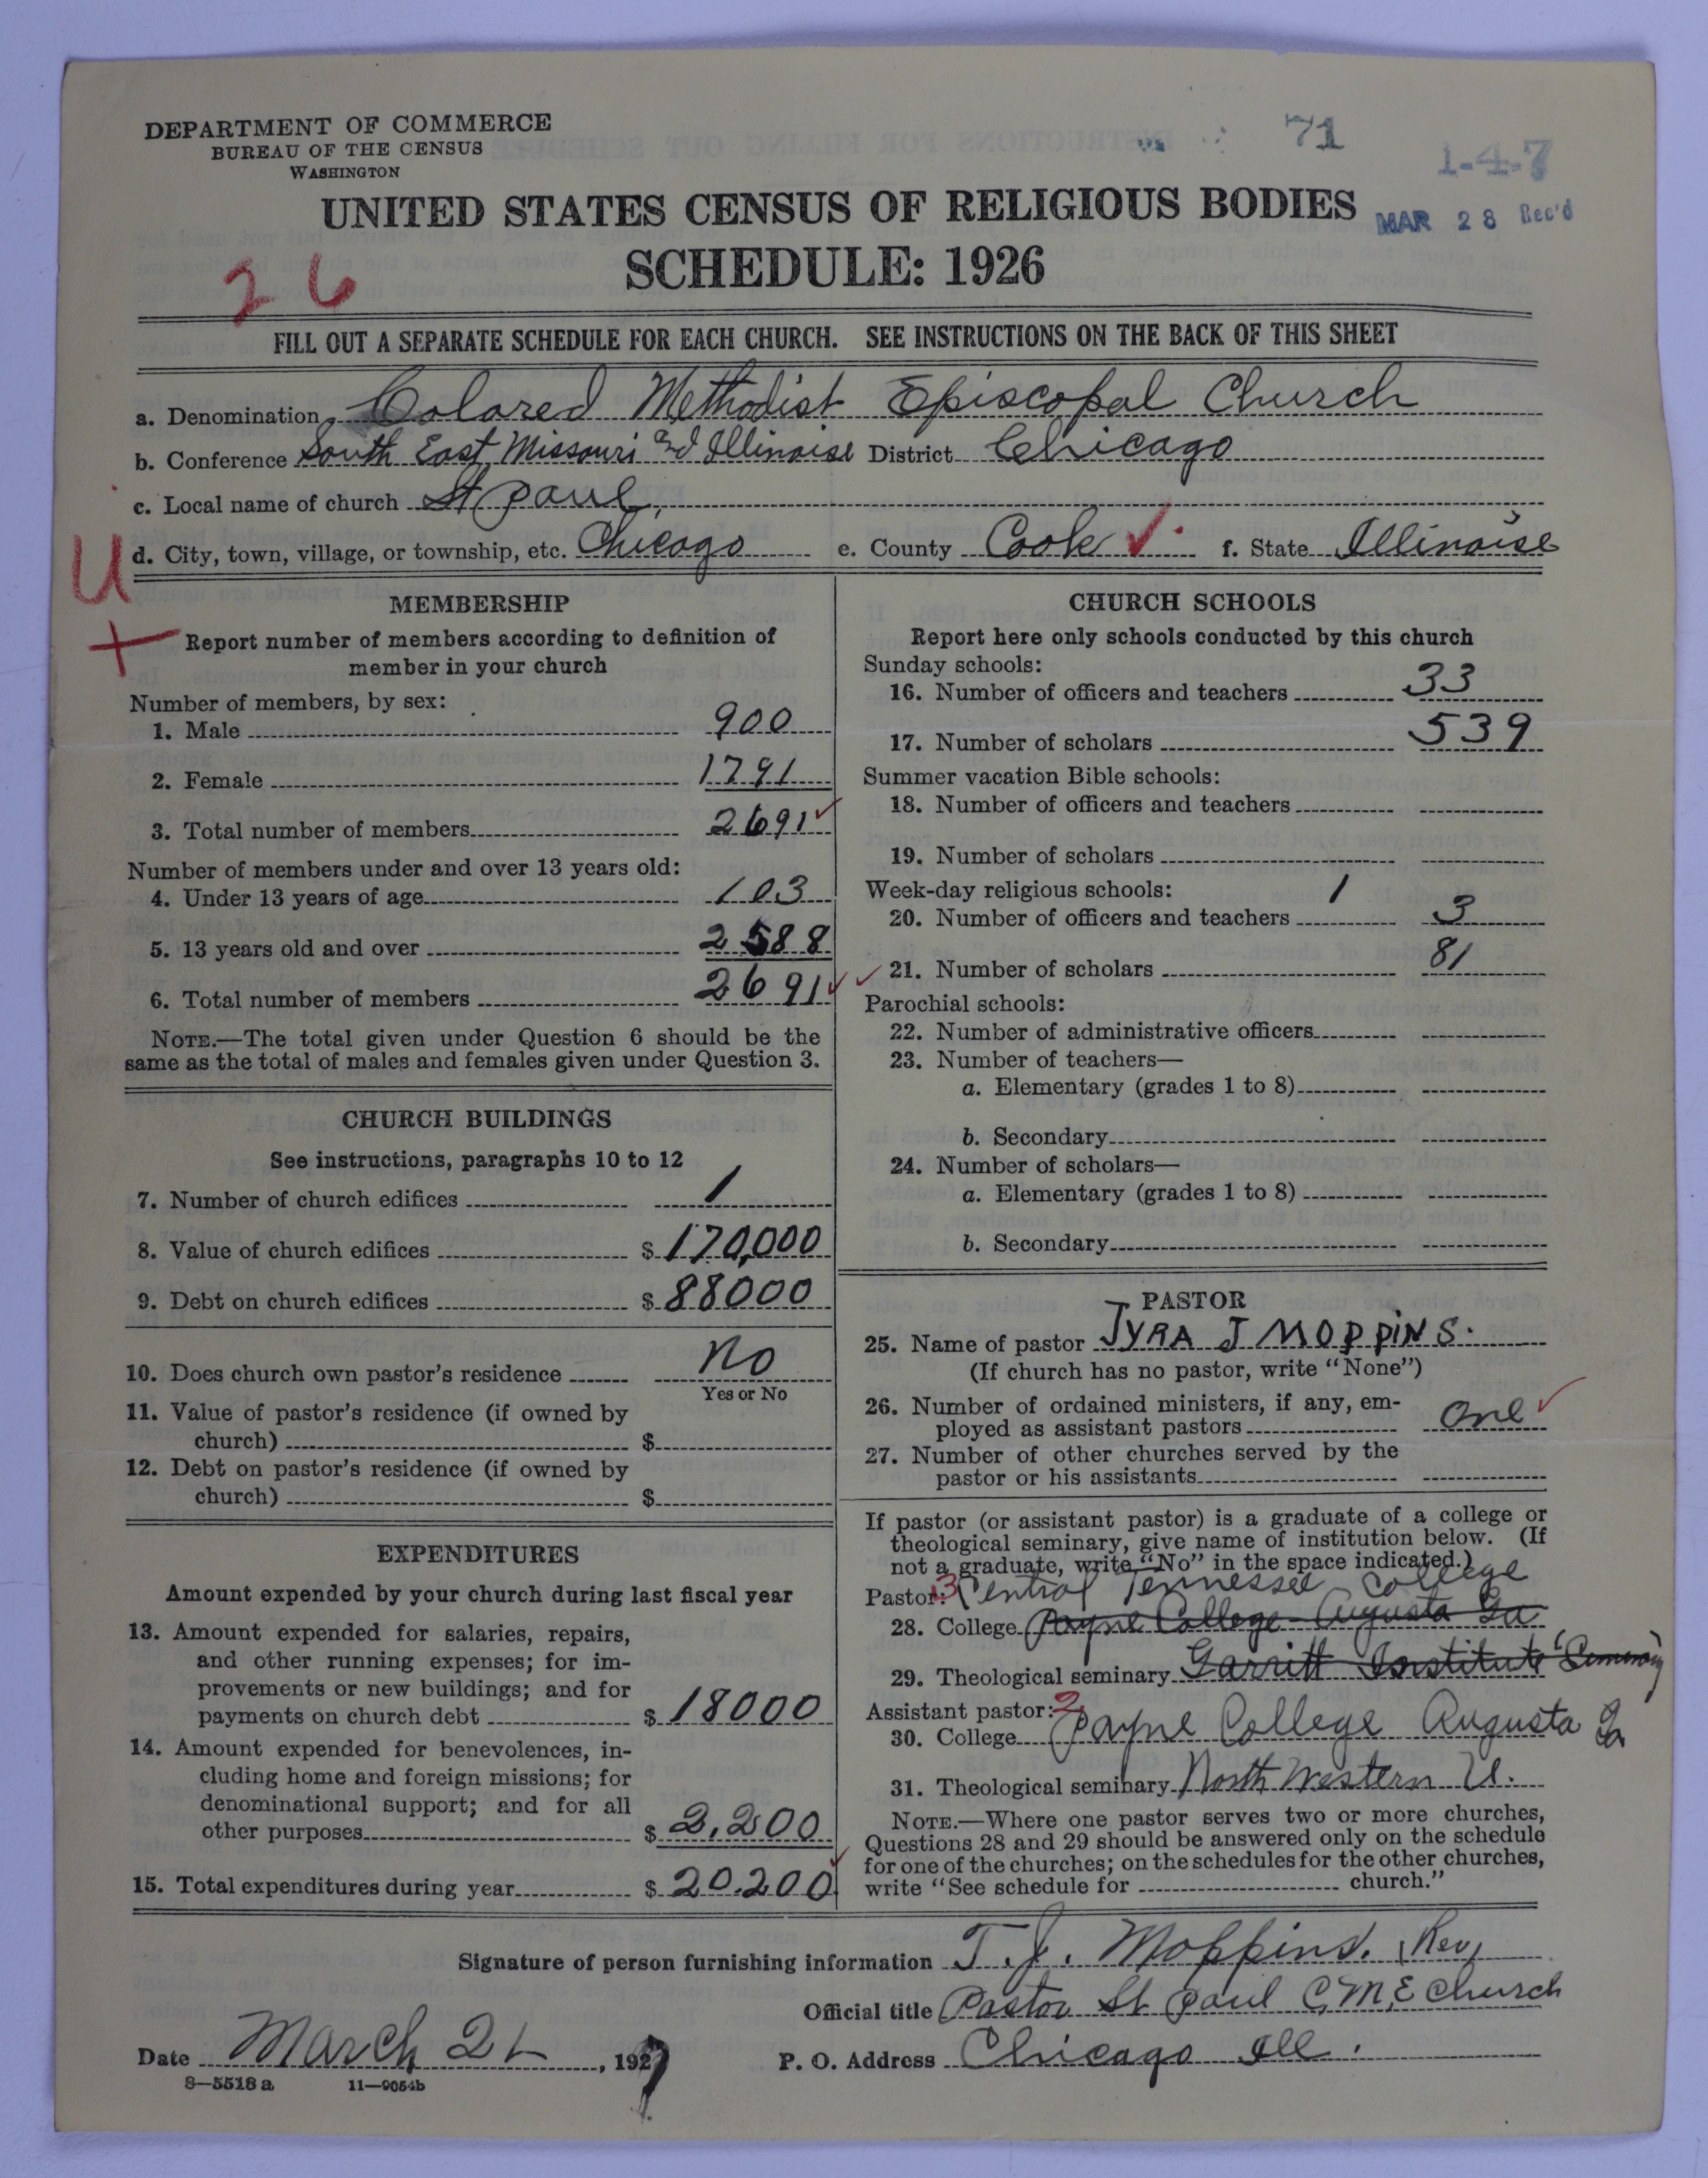 DEPARTMENT OF COMMERCE
BUREAU OF THE CENSUS
WASHINGTON
71
1-4-7
UNITED STATES CENSUS OF RELIGIOUS BODIES
MAR 28 Rec'd
SCHEDULE: 1926
26
FILL OUT A SEPARATE SCHEDULE FOR EACH CHURCH. SEE INSTRUCTIONS ON THE BACK OF THIS SHEET
a. Denomination Colored Methodist Episcopal Church
b. Conference South East Missouri and Illinoise District Chicago
c. Local name of church St Paul
d. City, town, village, or township, etc. Chicago e. County Cook ✓ f. State Illinoise
U
+
MEMBERSHIP
Report number of members according to definition of
member in your church
Number of members, by sex:
1. Male 900
2. Female 1791
3. Total number of members 2691 ✓
Number of members under and over 13 years old:
4. Under 13 years of age 103
5. 13 years old and over 2588
6. Total number of members 2691 ✓
NOTE.—The total given under Question 6 should be the
same as the total of males and females given under Question 3.
CHURCH BUILDINGS
See instructions, paragraphs 10 to 12
7. Number of church edifices 1
8. Value of church edifices $ 170,000
9. Debt on church edifices $ 88000
10. Does church own pastor's residence No
Yes or No
11. Value of pastor's residence (if owned by
church) $
12. Debt on pastor's residence (if owned by
church) $
EXPENDITURES
Amount expended by your church during last fiscal year
13. Amount expended for salaries, repairs,
and other running expenses; for im-
provements or new buildings; and for
payments on church debt $ 18000
14. Amount expended for benevolences, in-
cluding home and foreign missions; for
denominational support; and for all
other purposes $ 2,200
15. Total expenditures during year $ 20.200 ✓
CHURCH SCHOOLS
Report here only schools conducted by this church
Sunday schools:
16. Number of officers and teachers 33
17. Number of scholars 539
Summer vacation Bible schools:
18. Number of officers and teachers
19. Number of scholars
Week-day religious schools: 1
20. Number of officers and teachers 3
✓ 21. Number of scholars 81
Parochial schools:
22. Number of administrative officers
23. Number of teachers—
a. Elementary (grades 1 to 8)
b. Secondary
24. Number of scholars—
a. Elementary (grades 1 to 8)
b. Secondary
PASTOR
25. Name of pastor TYRA J MOPPINS.
(If church has no pastor, write "None")
26. Number of ordained ministers, if any, em-
ployed as assistant pastors One ✓
27. Number of other churches served by the
pastor or his assistants
If pastor (or assistant pastor) is a graduate of a college or
theological seminary, give name of institution below. (If
not a graduate, write "No" in the space indicated.)
Pastor: 3 Central Tennessee College
28. College Payne College Augusta Ga
29. Theological seminary Garritt Institute
Assistant pastor: 2
30. College Payne College Augusta Ga
31. Theological seminary North Western U.
NOTE.—Where one pastor serves two or more churches,
Questions 28 and 29 should be answered only on the schedule
for one of the churches; on the schedules for the other churches,
write "See schedule for church."
Signature of person furnishing information T. J. Moppins. (Rev)
Official title Pastor St Paul C.M.E Church
Date March 21, 1927
P. O. Address Chicago Ill.
8—5518 a 11—9054b